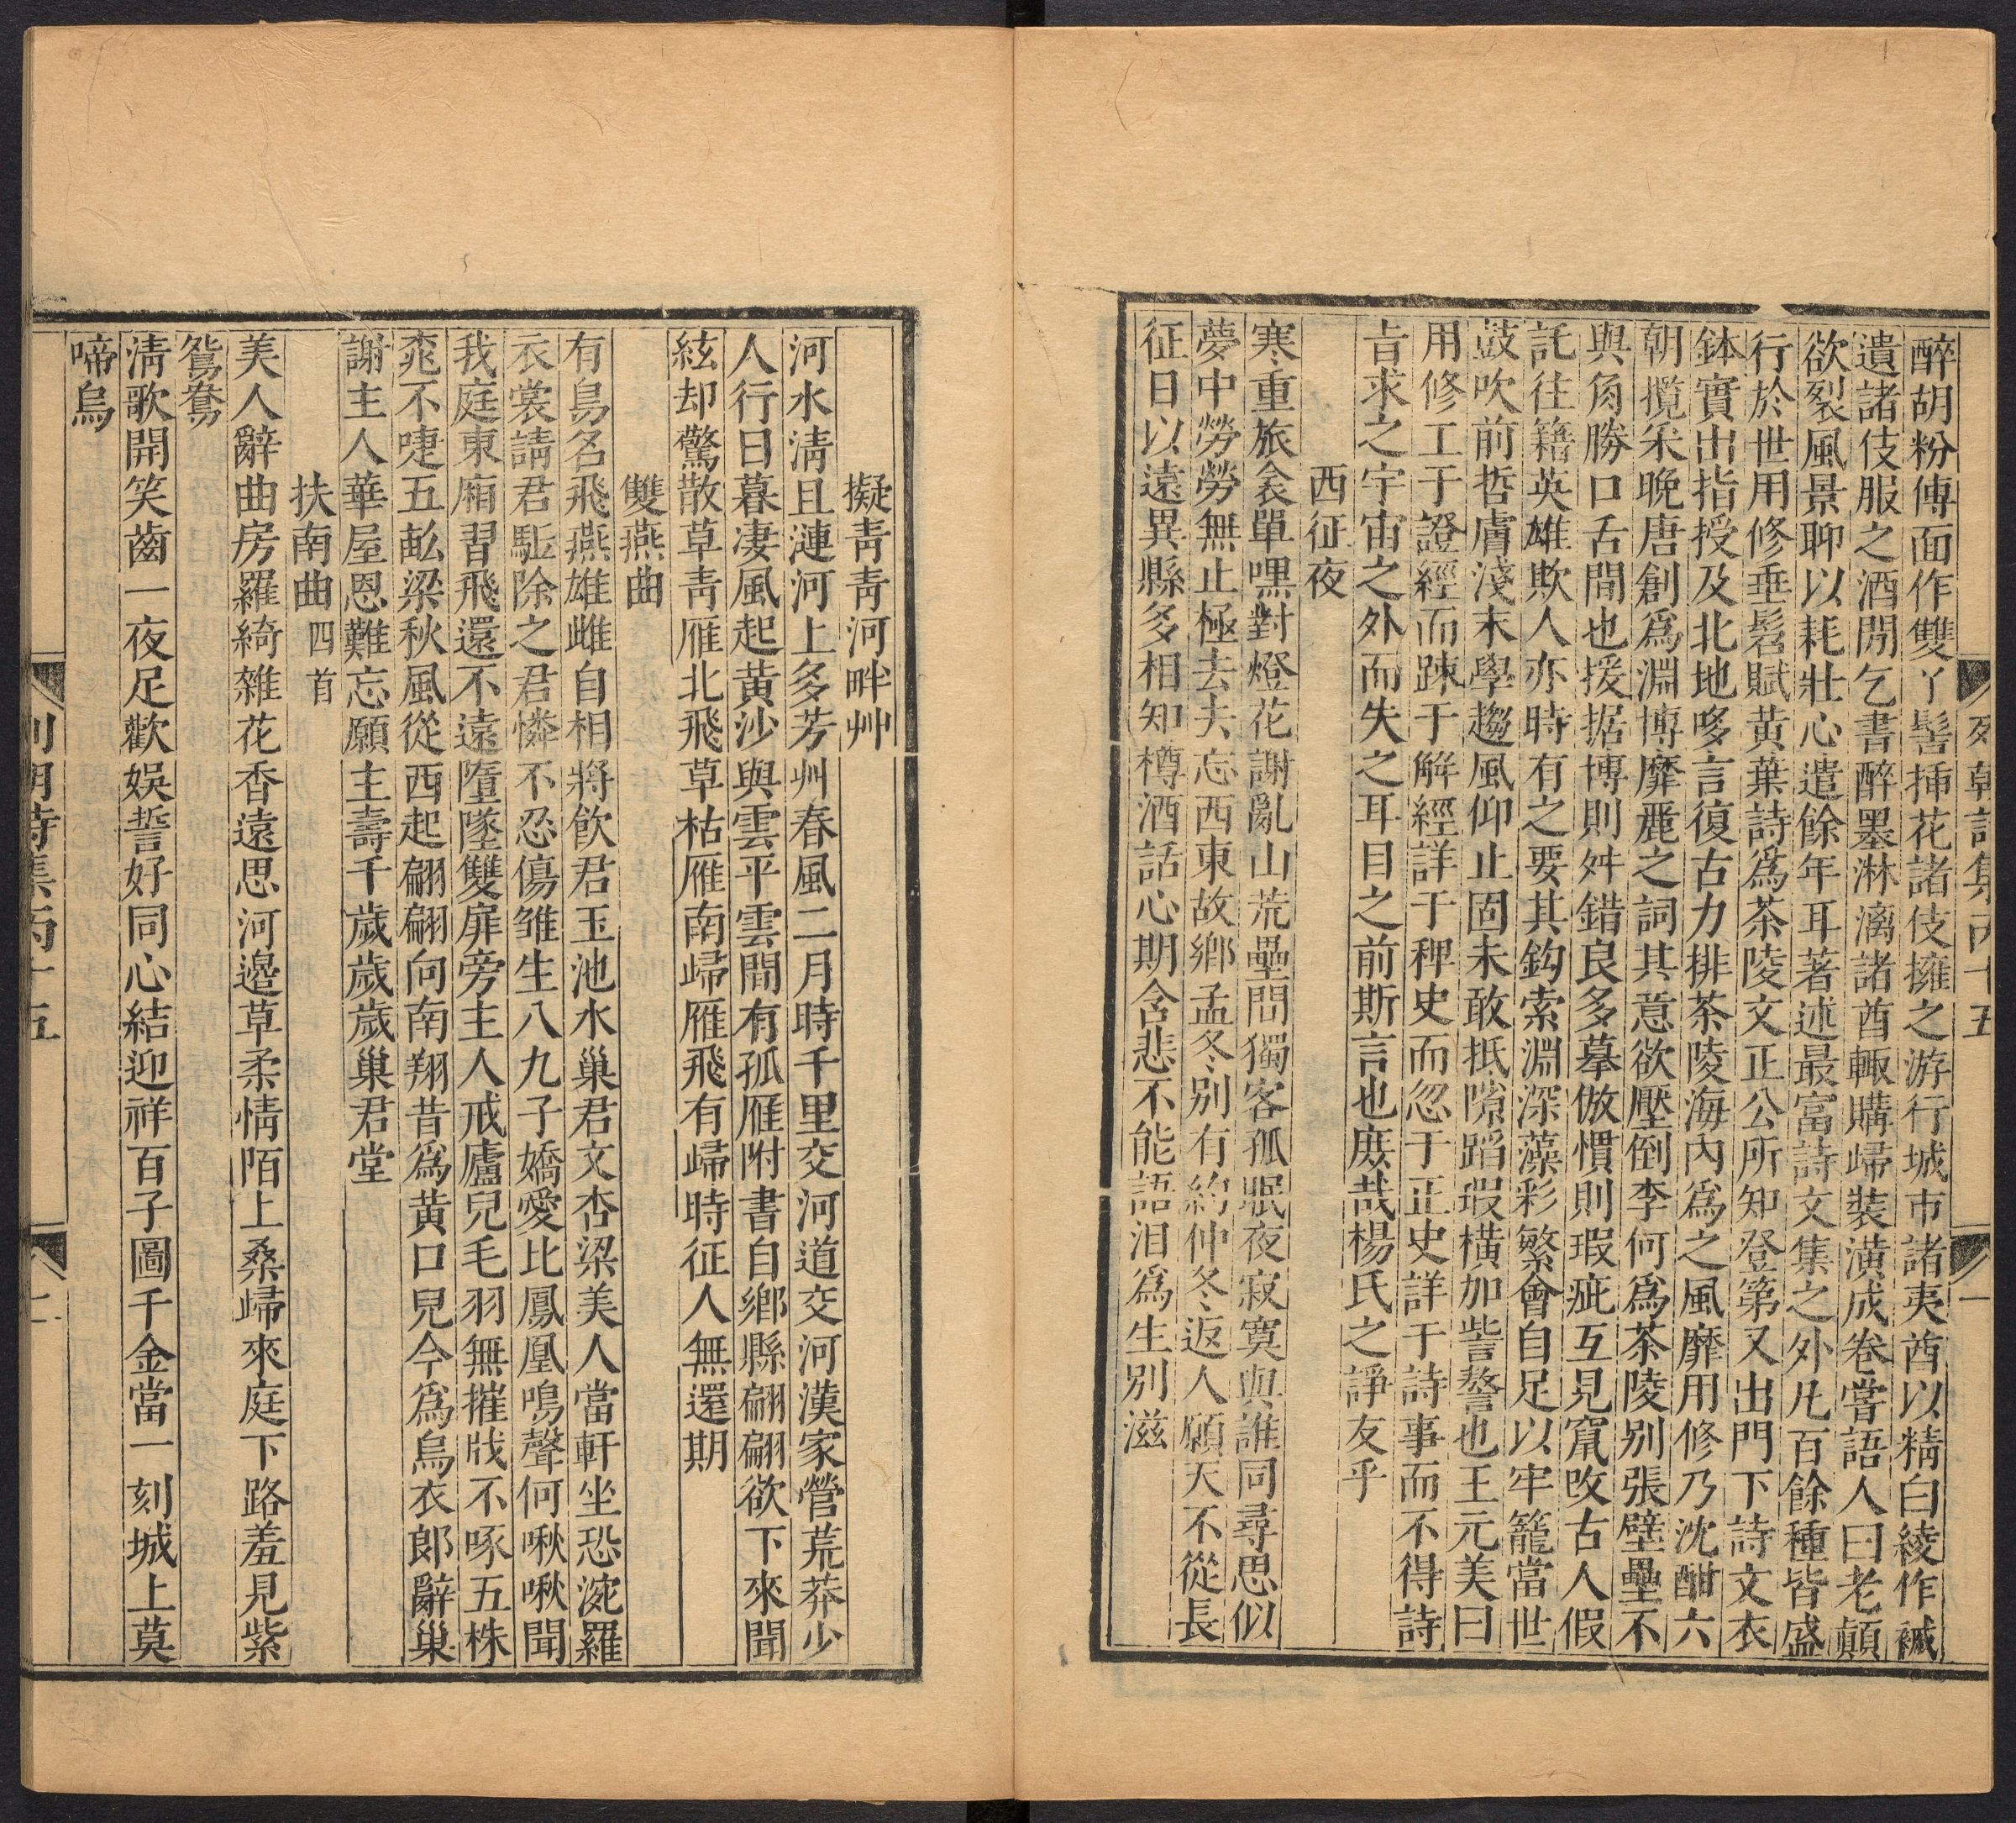 醉胡粉傅面作雙丫髻揷花諸伎擁之游行城市諸夷酋以精白綾作裓
遺諸伎服之酒閒乞書醉墨淋漓諸酋輙購歸裝潢成卷嘗語人曰老顛
欲裂風景聊以耗壯心遣餘年耳著述最富詩文集之外凡百餘種皆盛
行於世用修垂髫賦黃葉詩爲茶陵文正公所知登第又出門下詩文衣
鉢實出指授及北地哆言復古力排茶陵海內爲之風靡用修乃沈酣六
朝攬采晚唐創爲淵博靡麗之詞其意欲壓倒李何爲茶陵別張壁壘不
與角勝口舌閒也援据博則舛錯良多摹倣慣則瑕疵互見竄改古人假
託往籍英雄欺人亦時有之要其鈎索淵深藻彩繁會自足以牢籠當世
鼓吹前哲膚淺末學趨風仰止固未敢抵隙蹈瑕橫加訾謷也王元美曰
用修工于證經而踈于解經詳于稗史而忽于正史詳于詩事而不得詩
旨求之宇宙之外而失之耳目之前斯言也庻哉楊氏之諍友乎
西征夜
寒重旅衾單嘿對燈花謝亂山荒壘問獨客孤眠夜寂寞與誰同尋思似
夢中勞勞無止極去去忘西東故鄉孟冬別有約仲冬返人願天不從長
征日以遠異縣多相知樽酒話心期含悲不能語泪爲生別滋
列朝詩集丙十五
一
擬靑靑河畔艸
河水淸且漣河上多芳艸春風二月時千里交河道交河漢家營荒莽少
人行日暮凄風起黃沙與雲平雲間有孤雁附書自鄉縣翩翩欲下來聞
絃却驚散草靑雁北飛草枯雁南歸雁飛有歸時征人無還期
雙燕曲
有鳥名飛燕雄雌自相將飮君玉池水巢君文杏梁美人當軒坐恐涴羅
衣裳請君駈除之君憐不忍傷雏生八九子嬌愛比鳳凰鳴聲何啾啾聞
我庭東廂習飛還不遠墮墜雙扉旁主人戒廬兒毛羽無摧戕不啄五株
棗不唼五畝梁秋風從西起翩翩向南翔昔爲黃口兒今爲烏衣郎辭巢
謝主人華屋恩難忘願主壽千歲歲歲巢君堂
扶南曲四首
美人辭曲房羅綺雜花香遠思河邊草柔情陌上桑歸來庭下路羞見紫
鴛鴦
淸歌開笑齒一夜足歡娛誓好同心結迎祥百子圖千金當一刻城上莫
啼烏
列朝詩集丙十五
二